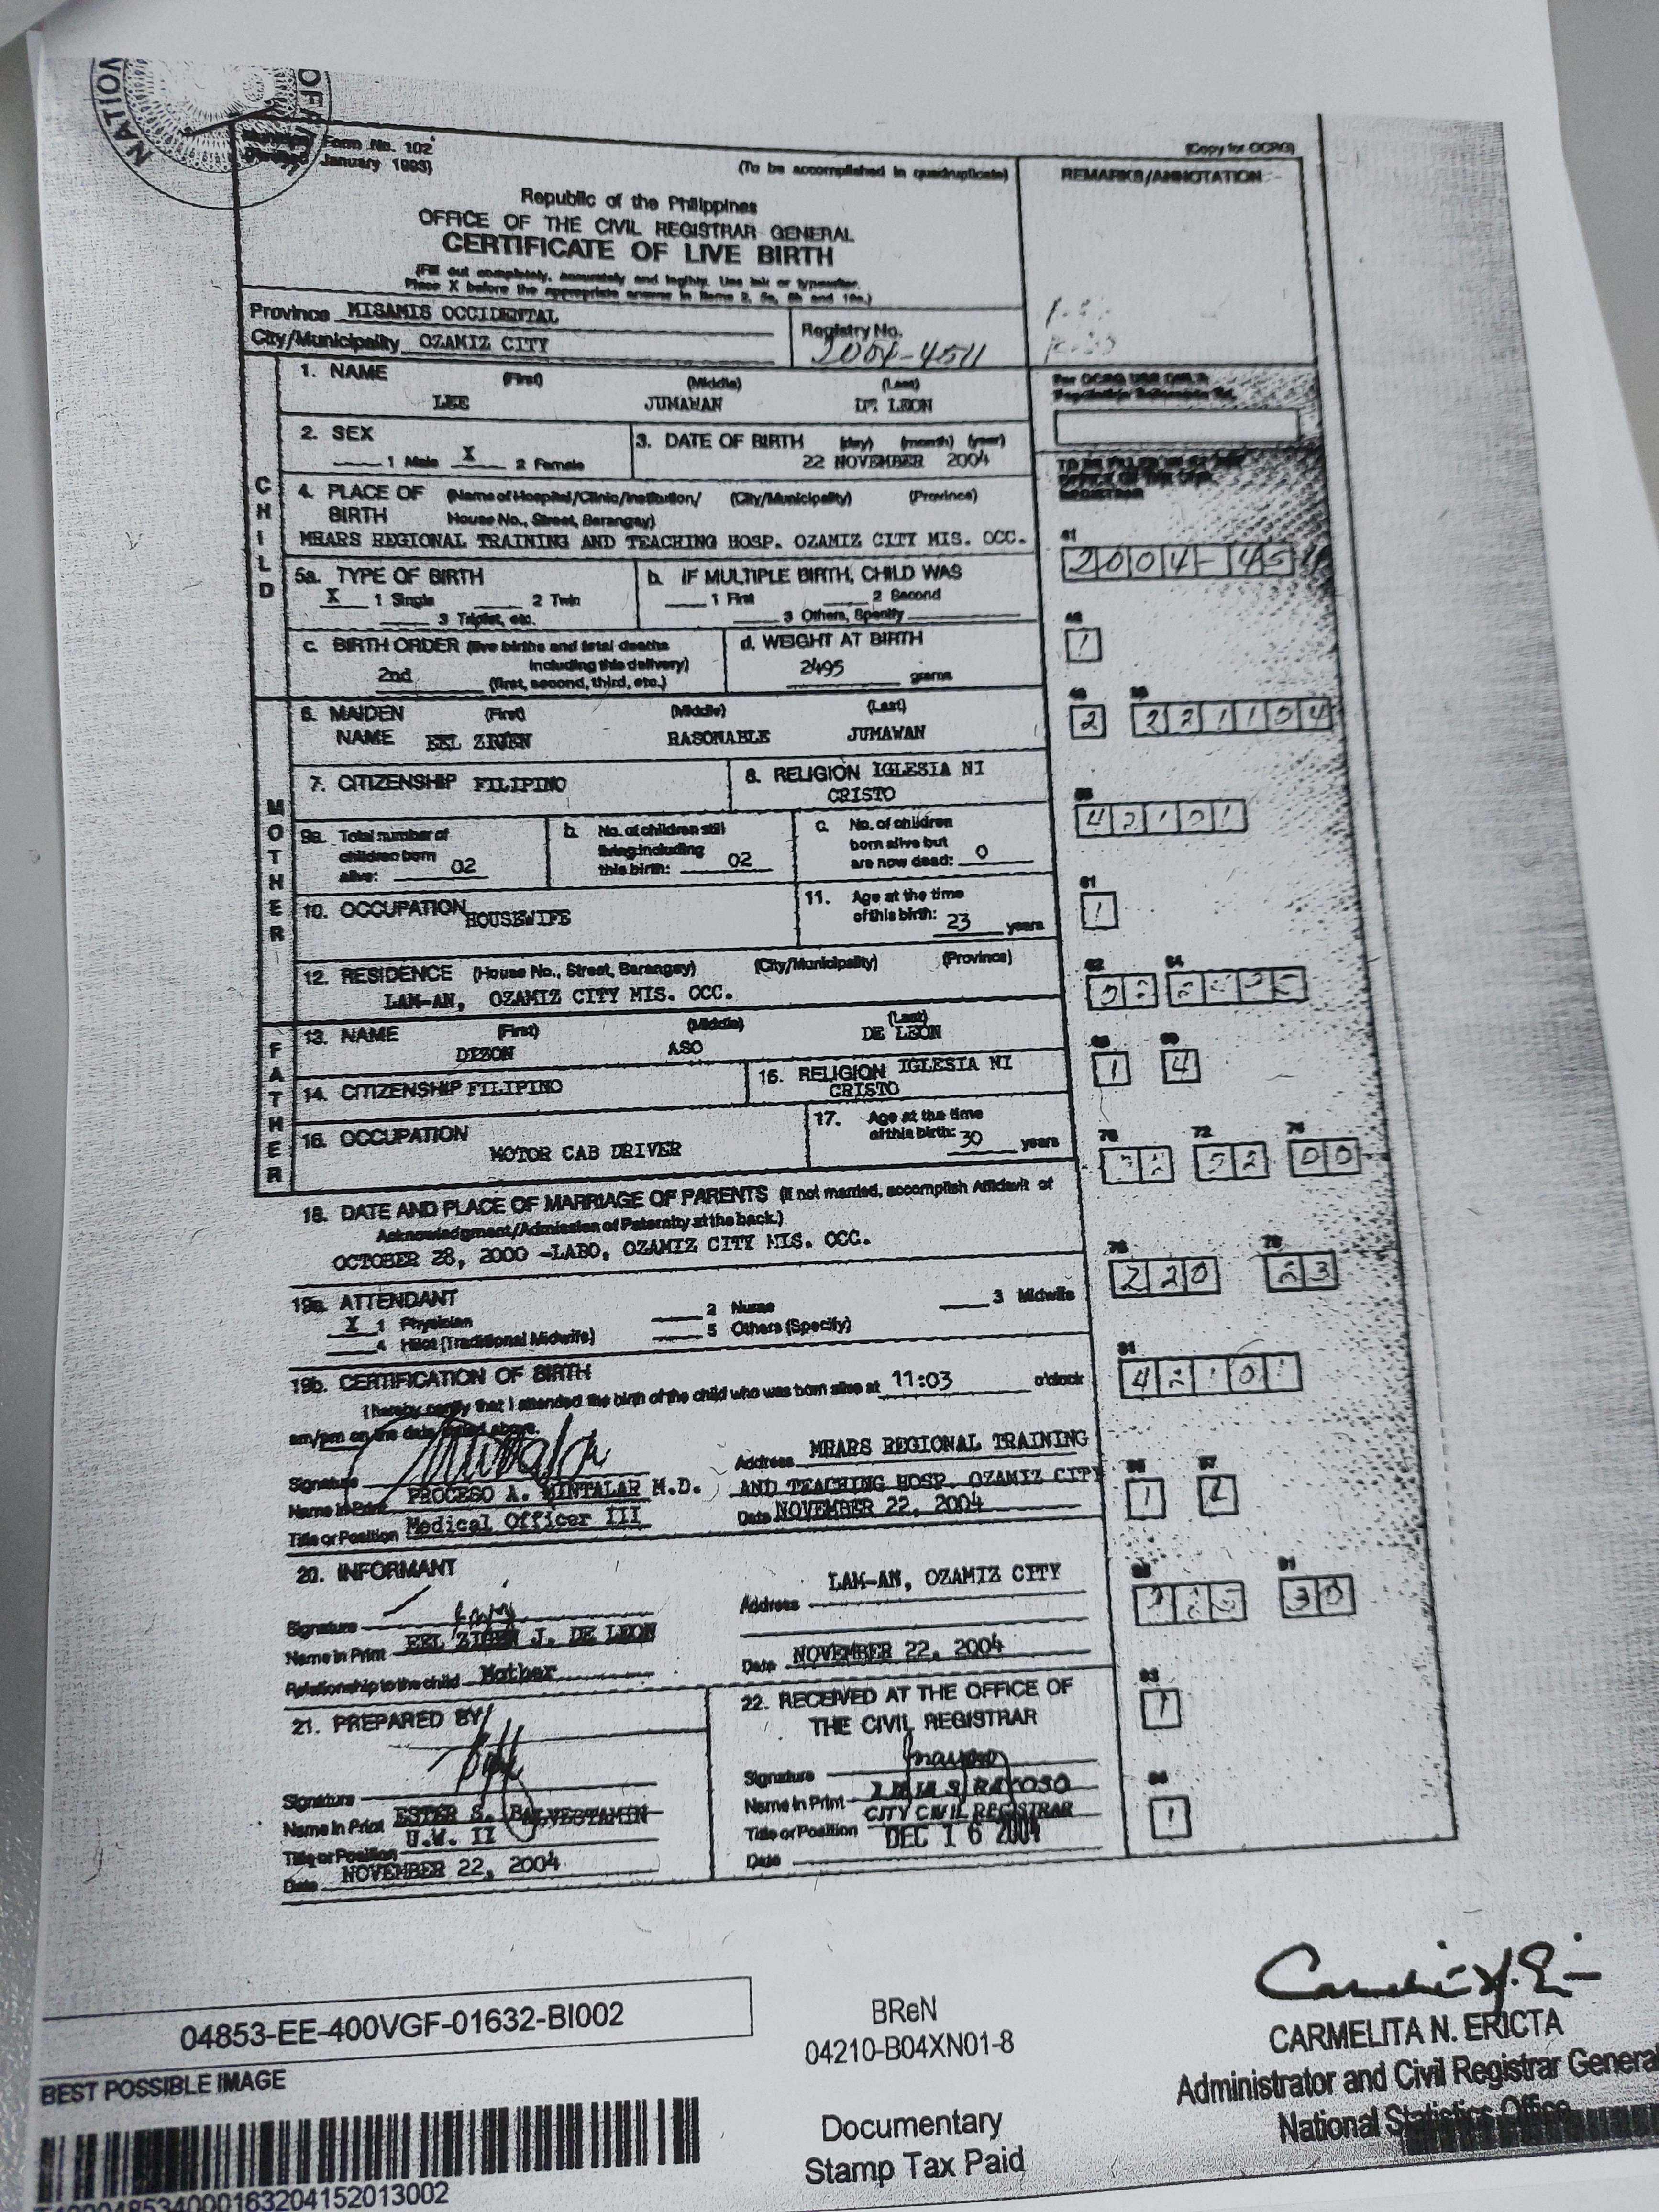 Form No. 102
January 1993)
(Copy for OCRG)
(To be accomplished in quadruplicate)
REMARKS/ANNOTATION
Republic of the Philippines
OFFICE OF THE CIVIL REGISTRAR GENERAL
CERTIFICATE OF LIVE BIRTH
(Fill out completely, accurately and legibly. Use ink or typewriter.
Place X before the appropriate answer in Items 2, 5a, 5b and 19a.)
Province MISAMIS OCCIDENTAL
City/Municipality OZAMIZ CITY
Registry No.
2004-4511
CHILD
1. NAME (First) (Middle) (Last)
LEE JUMAWAN DE LEON
2. SEX
1 Male X 2 Female
3. DATE OF BIRTH (day) (month) (year)
22 NOVEMBER 2004
4. PLACE OF BIRTH (Name of Hospital/Clinic/Institution/ (City/Municipality) (Province)
House No., Street, Barangay)
MHARS REGIONAL TRAINING AND TEACHING HOSP. OZAMIZ CITY MIS. OCC.
5a. TYPE OF BIRTH
X 1 Single 2 Twin
3 Triplet, etc.
b. IF MULTIPLE BIRTH, CHILD WAS
1 First 2 Second
3 Others, Specify
c. BIRTH ORDER (live births and fetal deaths
including this delivery)
2nd (first, second, third, etc.)
d. WEIGHT AT BIRTH
2495 grams
MOTHER
6. MAIDEN NAME (First) (Middle) (Last)
EEL RASONABLE JUMAWAN
7. CITIZENSHIP FILIPINO
8. RELIGION IGLESIA NI
CRISTO
9a. Total number of
children born
alive: 02
b. No. of children still
living including
this birth: 02
c. No. of children
born alive but
are now dead: 0
10. OCCUPATION HOUSEWIFE
11. Age at the time
of this birth: 23 years
12. RESIDENCE (House No., Street, Barangay) (City/Municipality) (Province)
LAM-AN, OZAMIZ CITY MIS. OCC.
FATHER
13. NAME (First) (Middle) (Last)
DIZON ASO DE LEON
14. CITIZENSHIP FILIPINO
15. RELIGION IGLESIA NI
CRISTO
16. OCCUPATION
MOTOR CAB DRIVER
17. Age at the time
of this birth: 30 years
18. DATE AND PLACE OF MARRIAGE OF PARENTS (If not married, accomplish Affidavit of
Acknowledgment/Admission of Paternity at the back.)
OCTOBER 28, 2000 -LABO, OZAMIZ CITY MIS. OCC.
19a. ATTENDANT
X 1 Physician 2 Nurse 3 Midwife
4 Hilot (Traditional Midwife) 5 Others (Specify)
19b. CERTIFICATION OF BIRTH
I hereby certify that I attended the birth of the child who was born alive at 11:03 o'clock
am/pm on the date stated above.
Signature
Name in Print PROCESO A. MINTALAR M.D.
Title or Position Medical Officer III
Address MHARS REGIONAL TRAINING
AND TEACHING HOSP. OZAMIZ CITY
Date NOVEMBER 22, 2004
20. INFORMANT
Signature
Name in Print EEL J. DE LEON
Relationship to the child Mother
Address LAM-AN, OZAMIZ CITY
Date NOVEMBER 22, 2004
21. PREPARED BY
Signature
Name in Print ESTER S.
Title or Position U.W. II
Date NOVEMBER 22, 2004
22. RECEIVED AT THE OFFICE OF
THE CIVIL REGISTRAR
Signature
Name in Print
Title or Position CITY CIVIL REGISTRAR
Date DEC 16 2004
04853-EE-400VGF-01632-BI002
BEST POSSIBLE IMAGE
BReN
04210-B04XN01-8
Documentary
Stamp Tax Paid
CARMELITA N. ERICTA
Administrator and Civil Registrar General
National Statistics Office